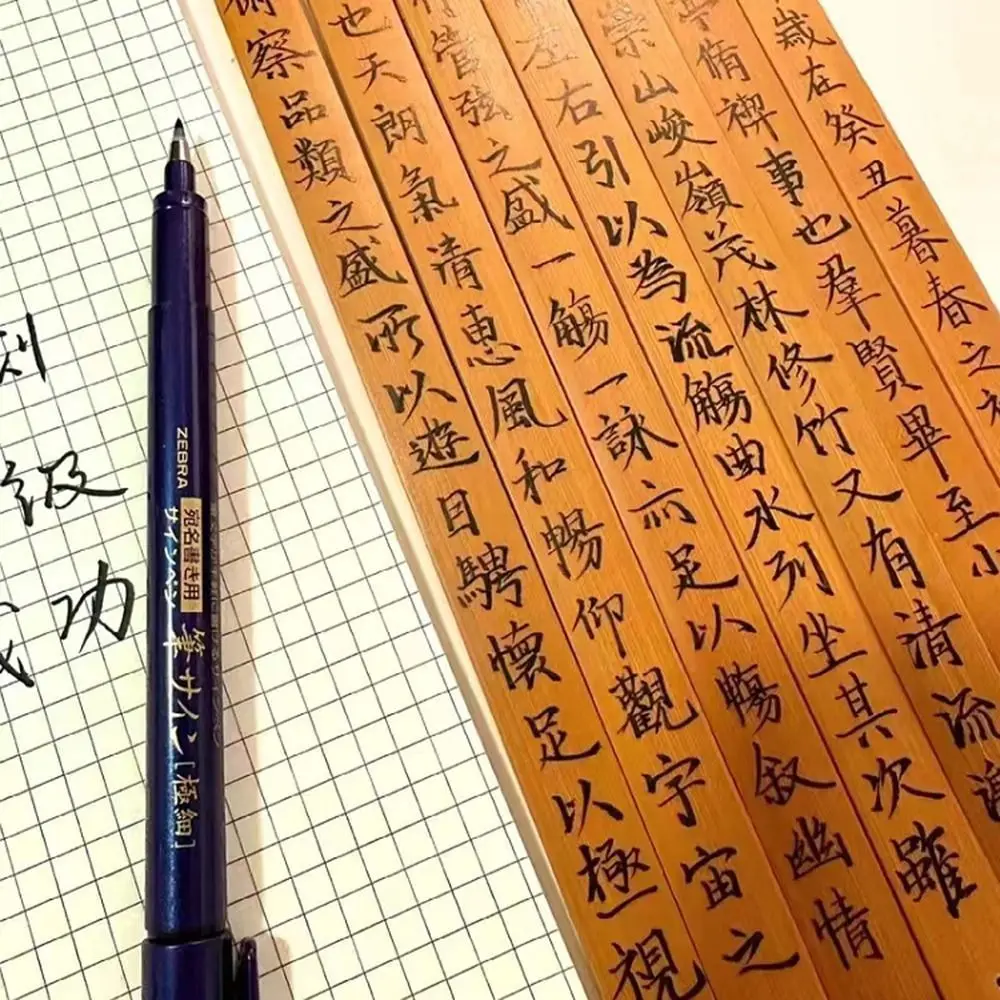 歲在癸丑暮春之
亭脩禊事也羣賢畢至
崇山峻嶺茂林修竹又有清流
左右引以為流觴曲水列坐其次雖
管弦之盛一觴一詠亦足以暢叙幽情
也天朗氣清惠風和暢仰觀宇宙之
俯察品類之盛所以遊目騁懷足以極視
ZEBRA
宛名書き用
サインペン
筆サイン[極細]
级
功